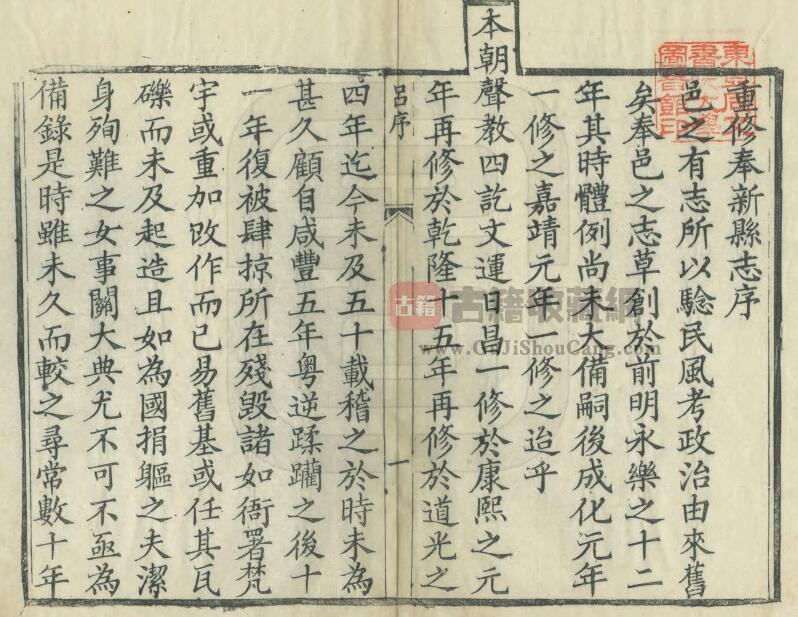 重修奉新縣志序
邑之有志所以騐民風考政治由來舊
矣奉邑之志草創於前明永樂之十二
年其時體例尚未大備嗣後成化元年
一修之嘉靖元年一修之迨乎
本朝聲教四訖文運日昌一修於康熙之元
年再修於乾隆十五年再修於道光之
呂序
一
四年迄今未及五十載稽之於時未為
甚久顧自咸豐五年粵逆蹂躪之後十
一年復被肆掠所在殘毀諸如衙署梵
宇或重加改作而已易舊基或任其瓦
礫而未及起造且如為國捐軀之夫潔
身殉難之女事關大典尤不可不亟為
備錄是時雖未久而較之尋常數十年
古籍 古籍收藏網
www.GuJiShouCang.com